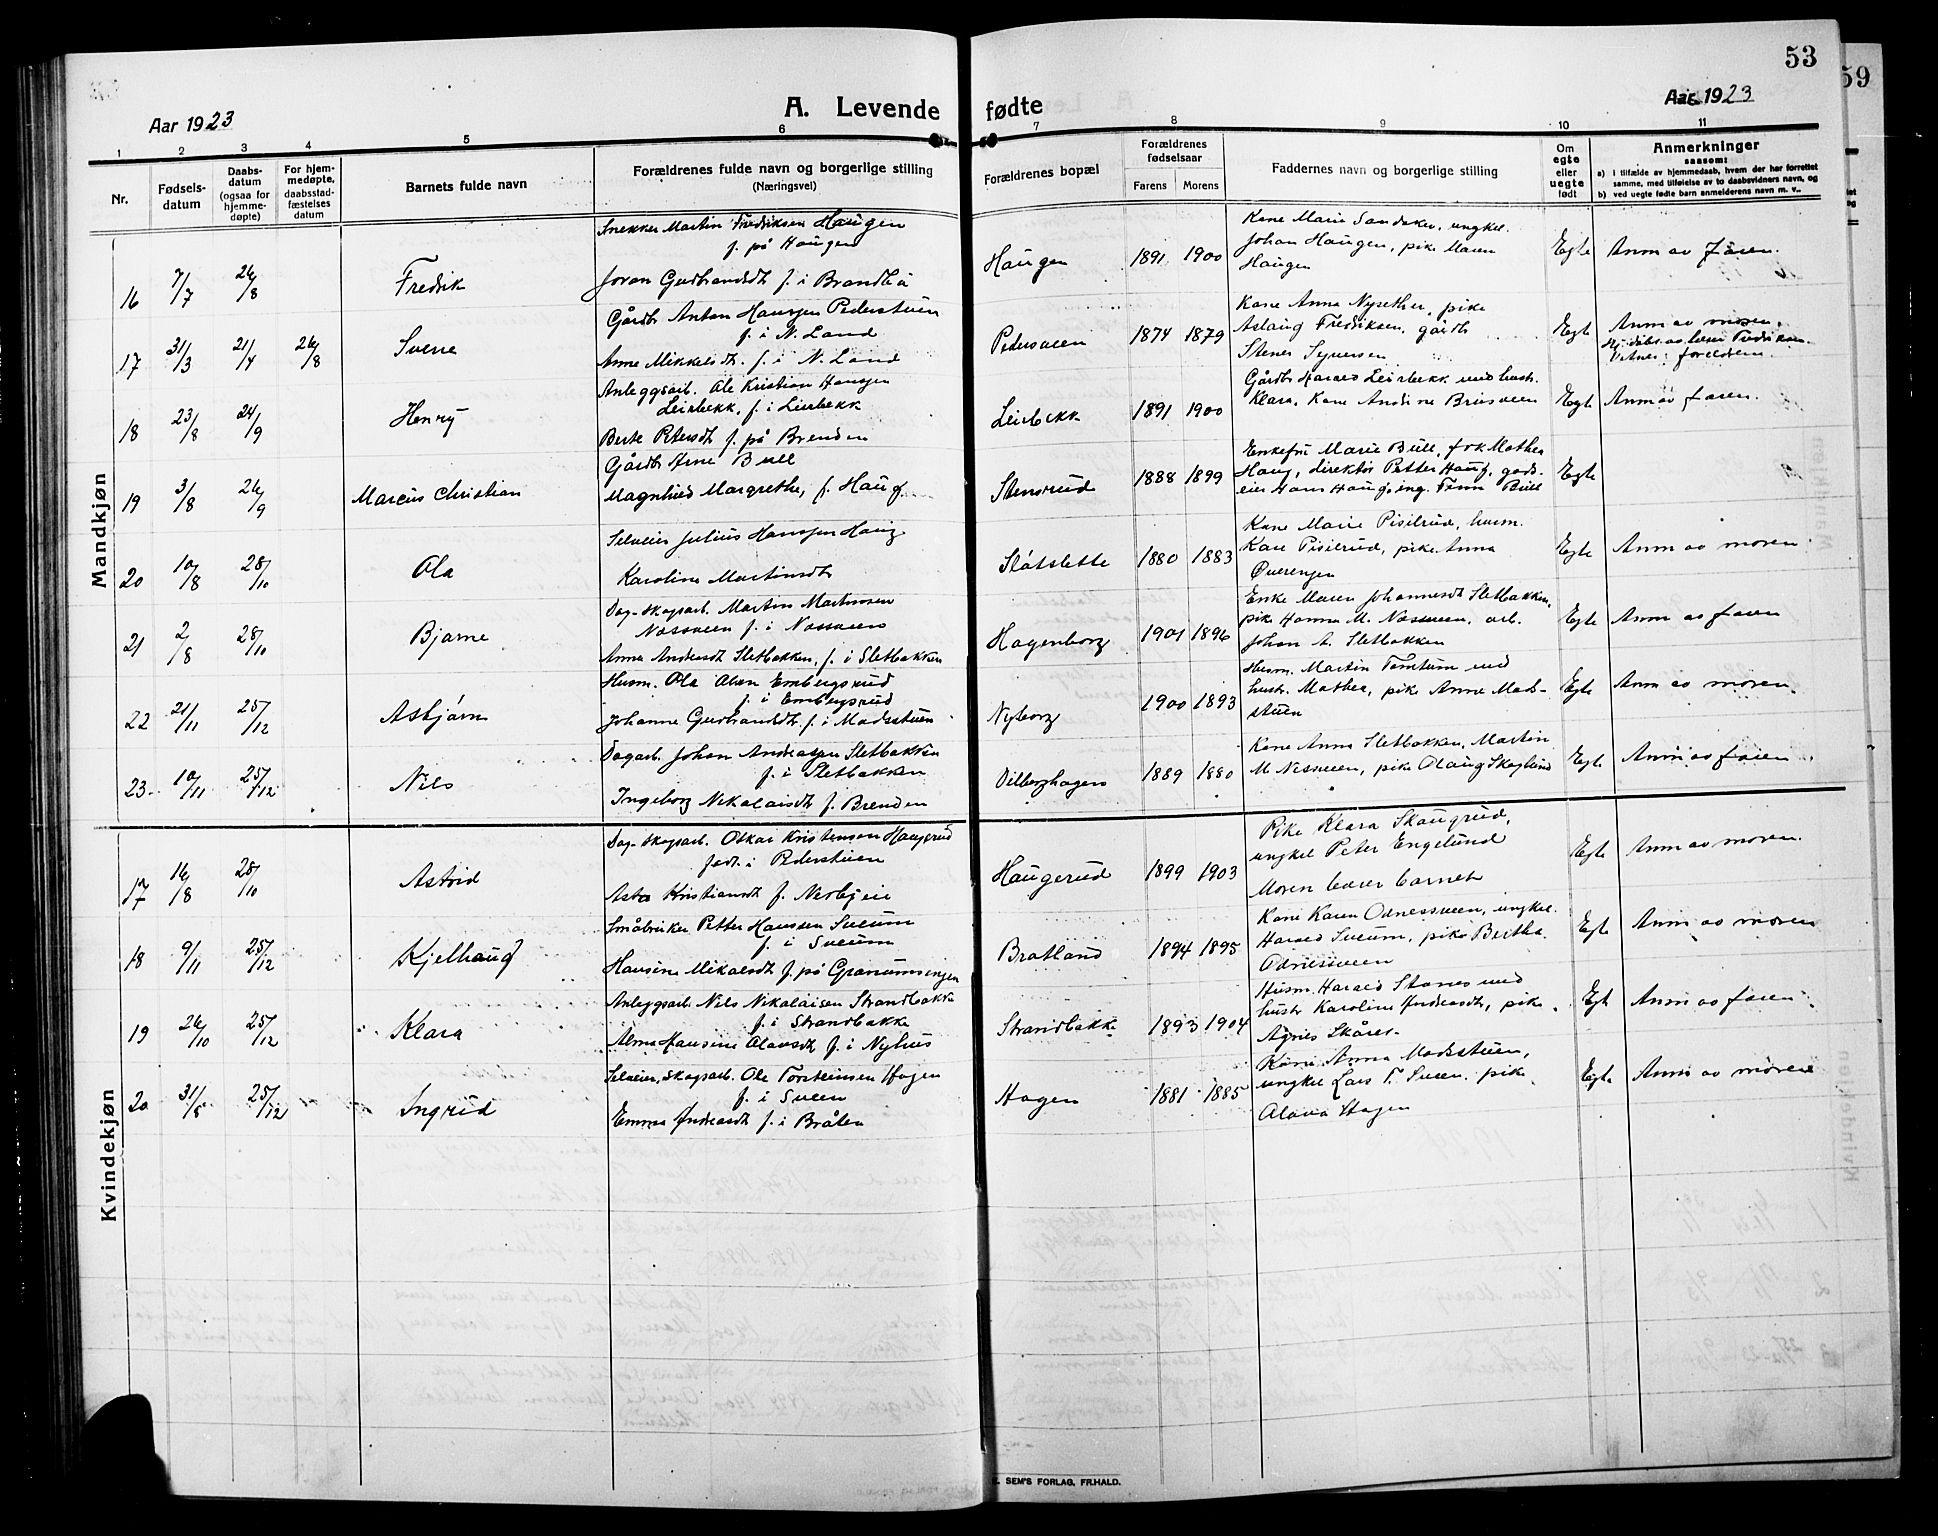 53
59
Aar 1923
A. Levende fødte
Aar 1923
1 2 3 4 5 6 7 8 9 10 11
Nr.
Fødsels-
datum
Daabs-
datum
(ogsaa for
hjemme-
døpte)
For hjem-
medøpte,
daabsstad-
fæstelses
datum
Barnets fulde navn
Forældrenes fulde navn og borgerlige stilling
(Næringsvei)
Forældrenes bopæl
Forældrenes
fødselsaar
Farens Morens
Faddernes navn og borgerlige stilling
Om
egte
eller
uegte
født
Anmerkninger
saasom:
a) i tilfælde av hjemmedaab, hvem der har forrettet
samme, med tilføielse av to daabsvidners navn, og
b) ved uegte fødte barn anmelderens navn m. v..
Mandkjøn
16 7/7 26/8 Fredrik
Snekker Martin Fredriksen Haugen
f. på Haugen
Joran Gudbrandsdt f. i Brandli
Haugen 1891 1900
Kone Marie Sandaker, ungkl.
Johan Haugen, pike Maren
Haugen
Egte Anm av faren.
17 31/3 21/4 26/8 Sverre
Gårdbr Anton Hansen Pederstuen
f. i N. Land
Anne Mikkelsdt. f. i N. Land
1874 1879
Kone Anna Nysether, pike
Aslaug Fredriksen, gårdb
Stener Syversen
Egte Anm av moren.
Vitner: foreldrene.
18 23/8 24/9 Henry
Anleggsarb. Ole Kristian Hansen
Leirbekk, f. i Leirbekk
Berte Petersdt f. på Brenden
Leirbekk 1891 1900
Gårdb Harald Leirbekk med hust.
Klara, Kone Andine Brusveen
Egte Anm av faren.
19 3/8 26/9 Marcus Christian
Gårdbr Arne Bull
Magnhild Margrethe, f. Haug
Stensrud 1888 1899
Enkefru Marie Bull, frk Mathea
Haug, direktør Petter Haug, gods-
eier Hans Haug, ing. Finn Bull
Egte
20 10/8 28/10 Ola
Selveier Julius Hansen Haug
Karoline Martinsdt
Slåtslette 1880 1883
Kone Marie Pisilrud, husm.
Kare Pisilrud, pike Anna
Øverengen
Egte Anm av moren.
21 2/8 28/10 Bjarne
Dag-skogsarb. Martin Martinsen
Næssveen f. i Næssveen
Anna Andersdt Sletbakken, f. i Sletbakken
Hagenborg 1901 1896
Enke Maren Johannesdt Sletbakken,
pike Hanna M. Næssveen, arb.
Johan A. Sletbakken
Egte Anm av faren
22 21/11 25/12 Asbjørn
Husm. Ola Olsen Embergsrud
f. i Embergsrud
Johanne Gudbrandsdt. f. i Madsstuen
Nyborg 1900 1893
Husm. Martin Tomtum med
hustr. Mathea, pike Anne Mads-
stuen
Egte Anm av moren.
23 10/11 25/12 Nils
Dagarb. Johan Andreassen Sletbakken
f. i Sletbakken
Ingeborg Nikolaisdt f. Brenden
Vilberghagen 1889 1880
Kone Anna Sletbakken, Martin
M Nesveen, pike Olaug Skoglund
Egte Anm av faren.
Kvindekjøn
17 16/8 28/10 Astrid
Dag-skogsarb. Oskar Kristensen Haugerud
født i Pederstuen
Asta Kristiansdt f. Nerbyeie
Haugerud 1899 1903
Pike Klara Skaugrud,
ungkl Peter Engelund
Moren bærer barnet
Egte Anm av moren.
18 9/11 25/12 Kjellaug
Småbruker Petter Hansen Sveum
f. i Sveum
Hansine Mikalsdt f. på Granumsengen
Bratland 1894 1895
Kone Karen Odnesveen, ungkl.
Harald Sveum, pike Bertha
Odnesveen
Egte Anm av moren
19 26/10 25/12 Klara
Anleggsarb Nils Nikolaisen Strandbakke
f. i Strandbakke
Alma Hansine Olavsdt f. i Nyhus
Strandbakke 1893 1904
Husm. Harald Stanes med
hustr Karoline Andreasdt, pike
Agnes Skåres
Egt Anm av faren.
20 31/8 25/12 Ingrid
Selveier, skogsarb. Ole Torsteinsen Hagen
f. i Sveen
Emma Andreasdt f. i Bråten
Hagen 1881 1885
Kone Anna Madsstuen,
ungkl Lars T. Sveen, pike
Olava Hagen
Egte Anm av moren
E. SEM'S FORLAG, FR.HALD.